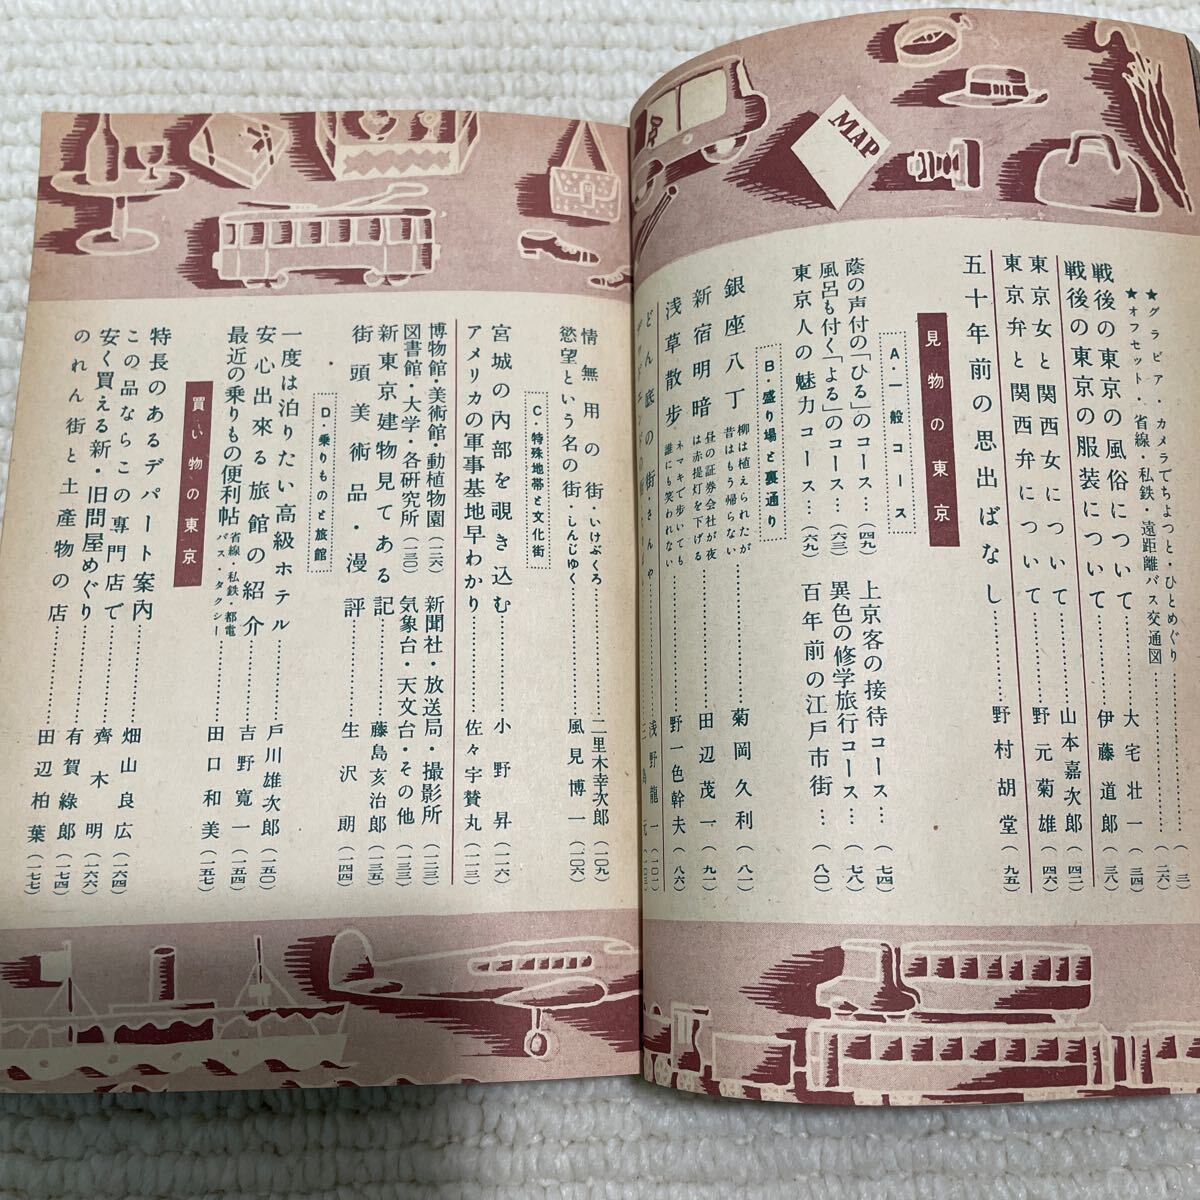 MAP
★グラビア・カメラでちよつと・ひとめぐり……(三)
★オフセット・省線・私鉄・遠距離バス交通図……(二六)
戦後の東京の風俗について……大宅壮一(三四)
戦後の東京の服装について……伊藤道郎(三八)
東京女と関西女について……山本嘉次郎(四二)
東京弁と関西弁について……野元菊雄(四六)
五十年前の思出ばなし……野村胡堂(九五)
見物の東京
A・一般コース
蔭の声付の「ひる」のコース…(四九)
風呂も付く「よる」のコース…(六三)
東京人の魅力コース…(六九)
上京客の接待コース…(七四)
異色の修学旅行コース…(七八)
百年前の江戸市街…(八〇)
B・盛り場と裏通り
銀座八丁 柳は植えられたが 昔はもう帰らない……菊岡久利(八一)
新宿明暗 昼の証券会社が夜 は赤提灯を下げる……田辺茂一(九一)
浅草散歩 ネマキで歩いても 誰にも笑われない……野一色幹夫(八六)
どん底の街・さんや……浅野龍一(一〇一)
情無用の街・いけぶくろ……二里木幸次郎(一〇九)
慾望という名の街・しんじゆく……風見博一(一〇六)
C・特殊地帯と文化街
宮城の內部を覗き込む……小野昇(一一六)
アメリカの軍事基地早わかり……佐々宇賛丸(一一三)
博物館・美術館・動植物園(一二六)
図書館・大学・各研究所(一三〇)
新聞社・放送局・撮影所(一二三)
気象台・天文台・その他(一三三)
新東京建物見てある記……藤島亥治郎(一三五)
街頭美術品・漫評……生沢朗(一四四)
D・乗りものと旅館
一度は泊りたい高級ホテル……戶川雄次郎(一五〇)
安心出來る旅館の紹介……吉野寬一(一五四)
最近の乗りもの便利帖 省線・私鉄・都電 バス・タクシー……田口和美(一五七)
買い物の東京
特長のあるデパート案內……畑山良広(一六四)
この品ならこの専門店で……齊木明(一六六)
安く買える新・旧問屋めぐり……有賀綠郎(一七四)
のれん街と土產物の店……田辺柏葉(一七七)